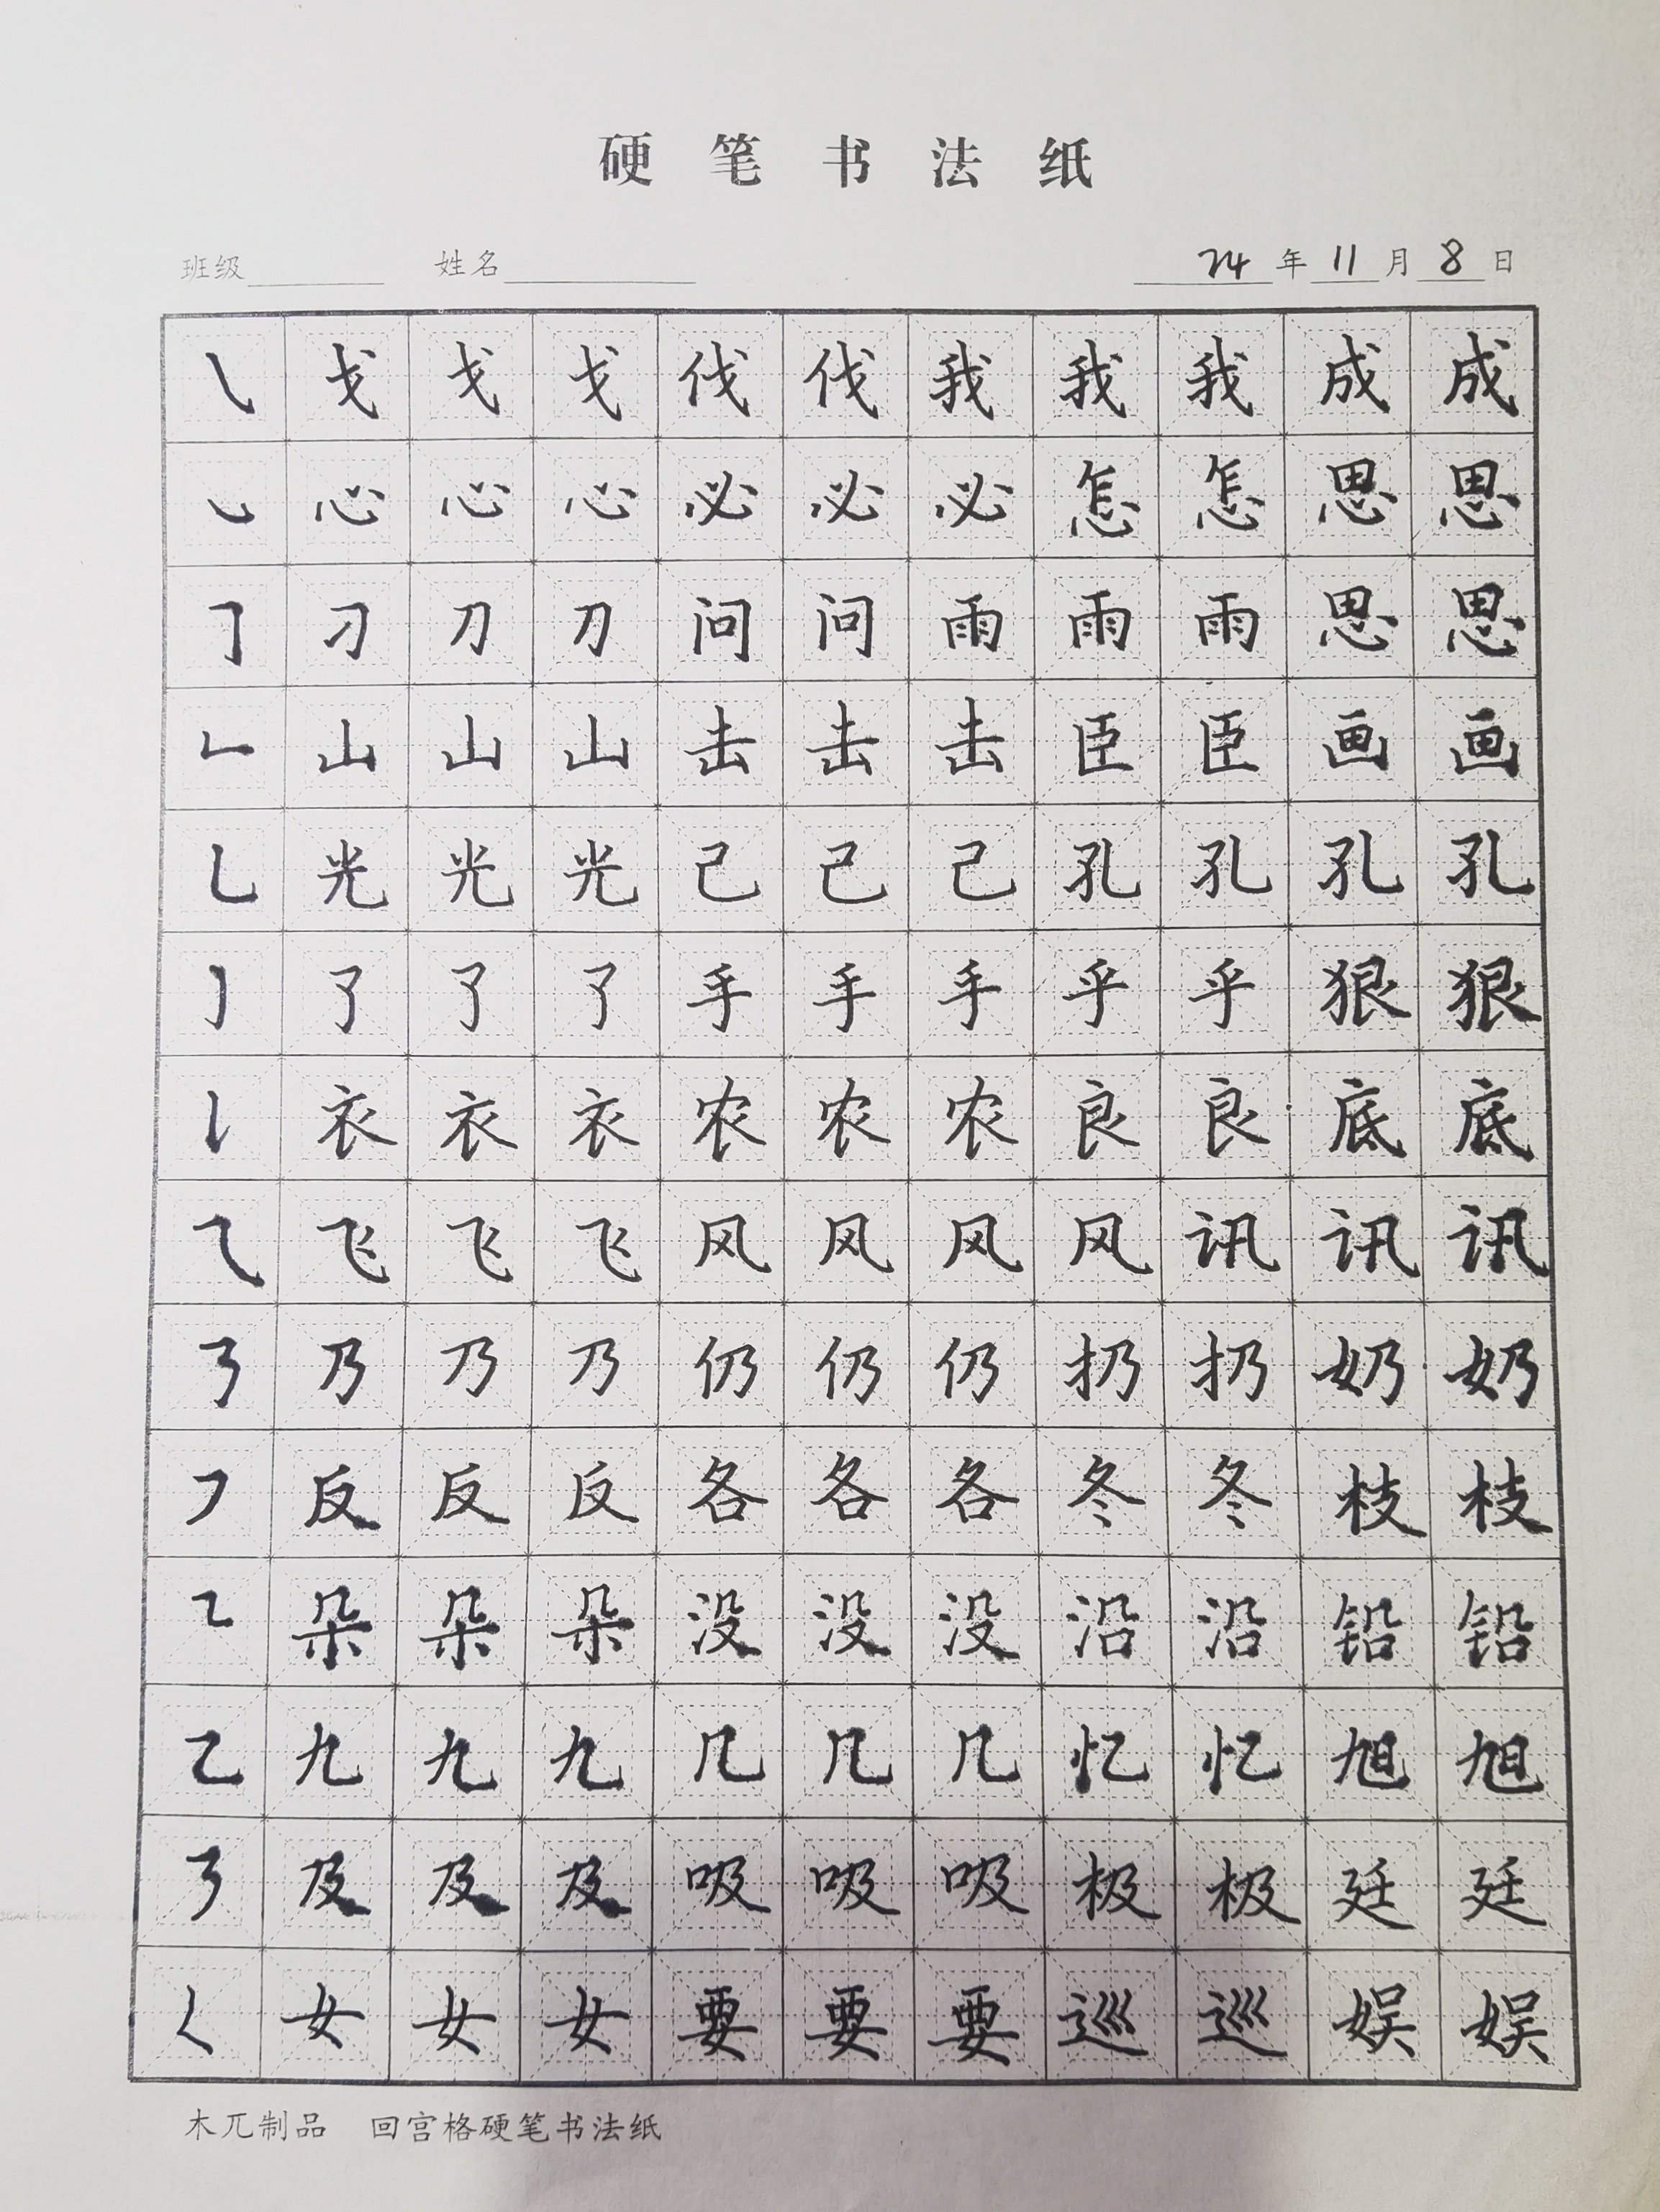 硬笔书法纸
班级 姓名 24年11月8日
㇂戈戈戈伐伐我我我成成
㇃心心心必必必怎怎思思
𠃌刁刀刀问问雨雨雨思思
𠃊山山山击击击臣臣画画
乚光光光己己己孔孔孔孔
亅了了了手手手乎乎狠狠
𠄌衣衣衣农农农良良底底
⺄飞飞飞风风风风讯讯讯
㇡乃乃乃仍仍仍扔扔奶奶
㇇反反反各各各冬冬枝枝
㇍朵朵朵没没没沿沿铅铅
乙九九九几几几忆忆旭旭
㇋及及及吸吸吸极极廷廷
𡿨女女女要要要巡巡娱娱
木兀制品 回宫格硬笔书法纸